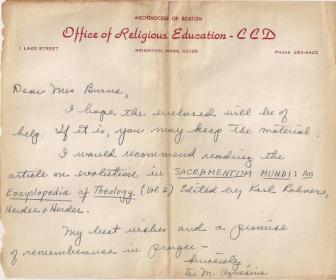 ARCHDIOCESE OF BOSTON
Office of Religious Education - CCD
1 LAKE STREET
BRIGHTON, MASS. 02135
PHONE 254-4425
Dear Mrs Burns,
I hope the enclosed will be of
help. If it is, you may keep the material.
I would recommend reading the
article on evolution in SACRAMENTUM MUNDI: AN
ENCYCLOPEDIA OF THEOLOGY. (Vol 2) Edited by Karl Rahner,
Herder & Herder.
My best wishes and a promise
of remembrance in prayer -
Sincerely,
Sr M.